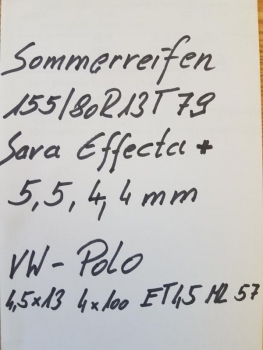 Sommerreifen
155/80R13T79
Sava Effecta +
5,5,4,4 mm
VW-Polo
4,5x13 4x100 ET45 ML 57